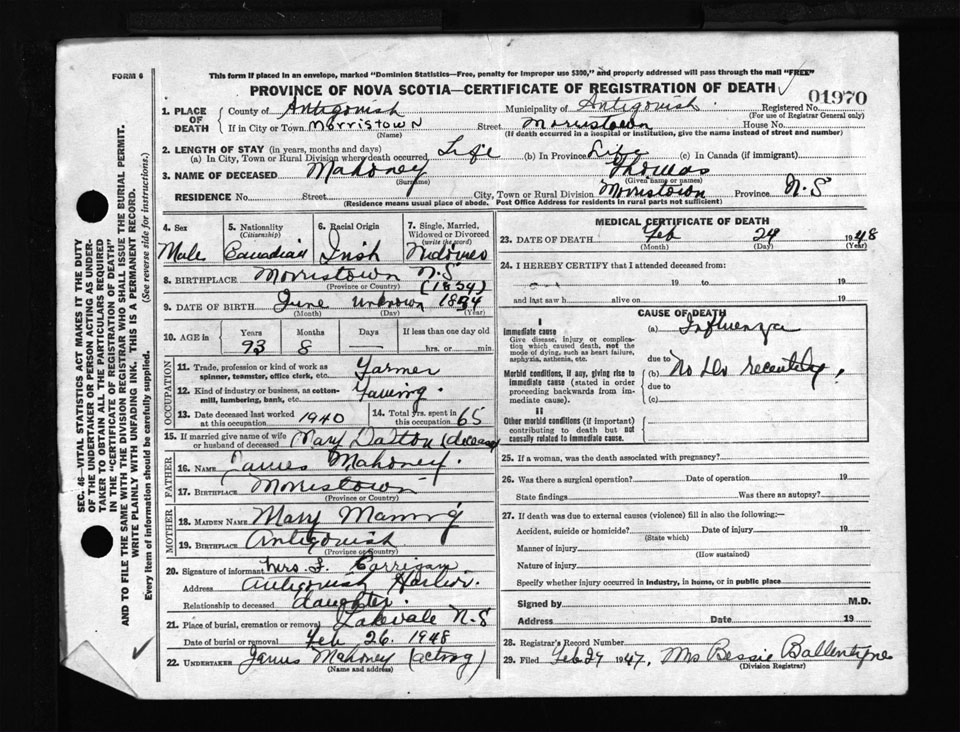 FORM 6
This form if placed in an envelope, marked "Dominion Statistics—Free, penalty for improper use $300," and properly addressed will pass through the mail "FREE"
PROVINCE OF NOVA SCOTIA—CERTIFICATE OF REGISTRATION OF DEATH
01970
1. PLACE OF DEATH County of Antigonish Municipality of Antigonish Registered No.
(For use of Registrar General only)
If in City or Town Morristown Street Morristown House No.
(Name) (If death occurred in a hospital or institution, give the name instead of street and number)
2. LENGTH OF STAY (in years, months and days)
(a) In City, Town or Rural Division where death occurred Life (b) In Province Life (c) In Canada (if immigrant)
3. NAME OF DECEASED Mahoney Thomas
(Surname) (Given name or names)
RESIDENCE No. Street City, Town or Rural Division Morristown Province N.S
(Residence means usual place of abode. Post Office Address for residents in rural parts not sufficient)
4. Sex 5. Nationality (Citizenship) 6. Racial Origin 7. Single, Married, Widowed or Divorced (write the word)
Male Canadian Irish
8. BIRTHPLACE Morristown N.S
(Province or Country) (1854)
9. DATE OF BIRTH June Unknown 1854
(Month) (Day) (Year)
10. AGE in Years Months Days If less than one day old
93 8 — hrs. or min.
OCCUPATION
11. Trade, profession or kind of work as spinner, teamster, office clerk, etc. Farmer
12. Kind of industry or business, as cotton-mill, lumbering, bank, etc. Farming
13. Date deceased last worked at this occupation 1940 14. Total yrs. spent in this occupation 65
15. If married give name of wife or husband of deceased Mary Dalton
FATHER
16. NAME James Mahoney.
17. BIRTHPLACE Morristown
(Province or Country)
MOTHER
18. MAIDEN NAME Mary Manning
19. BIRTHPLACE Antigonish
(Province or Country)
20. Signature of informant Mrs. F. Corrigan
Address Antigonish Harbor.
Relationship to deceased daughter.
21. Place of burial, cremation or removal Lakevale N.S
Date of burial or removal Feb 26. 1948
22. UNDERTAKER James Mahoney (acting)
(Name and address)
MEDICAL CERTIFICATE OF DEATH
23. DATE OF DEATH Feb 24 1948
(Month) (Day) (Year)
24. I HEREBY CERTIFY that I attended deceased from:
19 to 19
and last saw h alive on 19
CAUSE OF DEATH
I
Immediate cause
Give disease, injury or complication which caused death, not the mode of dying, such as heart failure, asphyxia, asthenia, etc.
(a) Influenza
due to
Morbid conditions, if any, giving rise to immediate cause (stated in order proceeding backwards from immediate cause).
(b) No Dr recently.
due to
(c)
II
Other morbid conditions (if important) contributing to death but not causally related to immediate cause.
25. If a woman, was the death associated with pregnancy?
26. Was there a surgical operation? Date of operation 19
State findings Was there an autopsy?
27. If death was due to external causes (violence) fill in also the following:—
Accident, suicide or homicide? Date of injury 19
(State which)
Manner of injury
(How sustained)
Nature of injury
Specify whether injury occurred in industry, in home, or in public place
Signed by M.D.
Address Date 19
28. Registrar's Record Number
29. Filed Feb 27 1947, Mrs Bessie Ballentyne
(Division Registrar)
SEC. 46—VITAL STATISTICS ACT MAKES IT THE DUTY
OF THE UNDERTAKER OR PERSON ACTING AS UNDER-
TAKER TO OBTAIN ALL THE PARTICULARS REQUIRED
IN THE "CERTIFICATE OF REGISTRATION OF DEATH"
AND TO FILE THE SAME WITH THE DIVISION REGISTRAR WHO SHALL ISSUE THE BURIAL PERMIT.
WRITE PLAINLY WITH UNFADING INK. THIS IS A PERMANENT RECORD.
Every item of information should be carefully supplied. (See reverse side for instructions.)